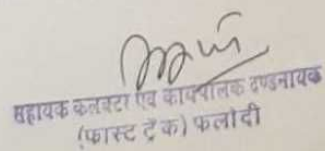 सहायक कलक्टर एवं कार्यपालक दण्डनायक
(फास्ट ट्रेक) फलोदी